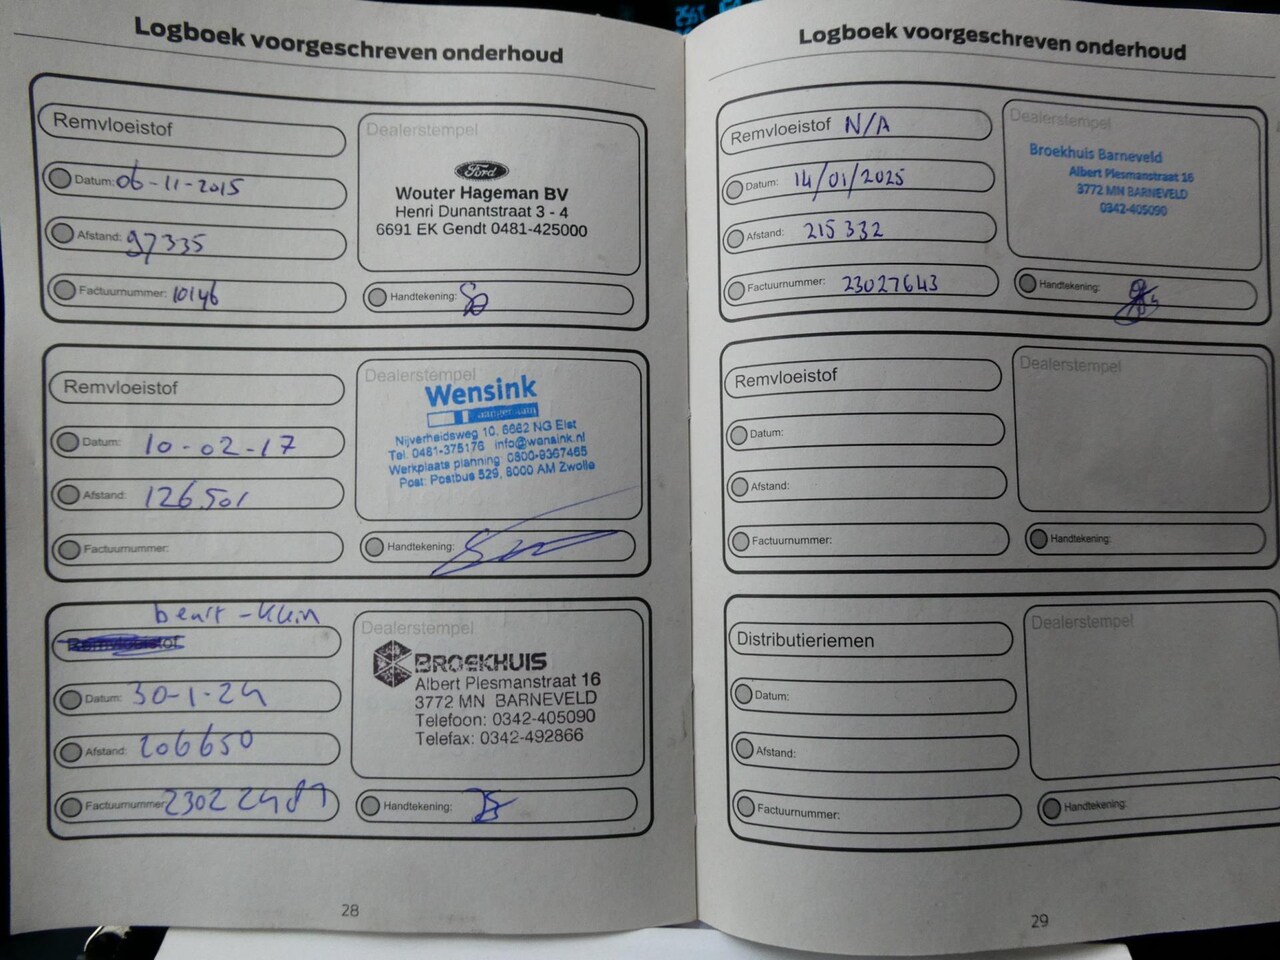 Logboek voorgeschreven onderhoud
Remvloeistof
Datum: 06-11-2015
Afstand: 97335
Factuurnummer: 10146
Dealerstempel
Ford
Wouter Hageman BV
Henri Dunantstraat 3 - 4
6691 EK Gendt 0481-425000
Handtekening:
Remvloeistof
Datum: 10-02-17
Afstand: 126501
Factuurnummer:
Dealerstempel
Wensink
aangenaam
Nijverheidsweg 10, 6662 NG Elst
Tel. 0481-375176 info@wensink.nl
Werkplaats planning: 0800-9367465
Post: Postbus 529, 8000 AM Zwolle
Handtekening:
Remvloeistof
Datum: 30-1-24
Afstand: 206650
Factuurnummer: 23022481
Dealerstempel
BROEKHUIS
Albert Plesmanstraat 16
3772 MN BARNEVELD
Telefoon: 0342-405090
Telefax: 0342-492866
Handtekening:
28
Logboek voorgeschreven onderhoud
Remvloeistof N/A
Datum: 14/01/2025
Afstand: 215 332
Factuurnummer: 23027643
Dealerstempel
Broekhuis Barneveld
Albert Plesmanstraat 16
3772 MN BARNEVELD
0342-405090
Handtekening:
Remvloeistof
Datum:
Afstand:
Factuurnummer:
Dealerstempel
Handtekening:
Distributieriemen
Datum:
Afstand:
Factuurnummer:
Dealerstempel
Handtekening:
29